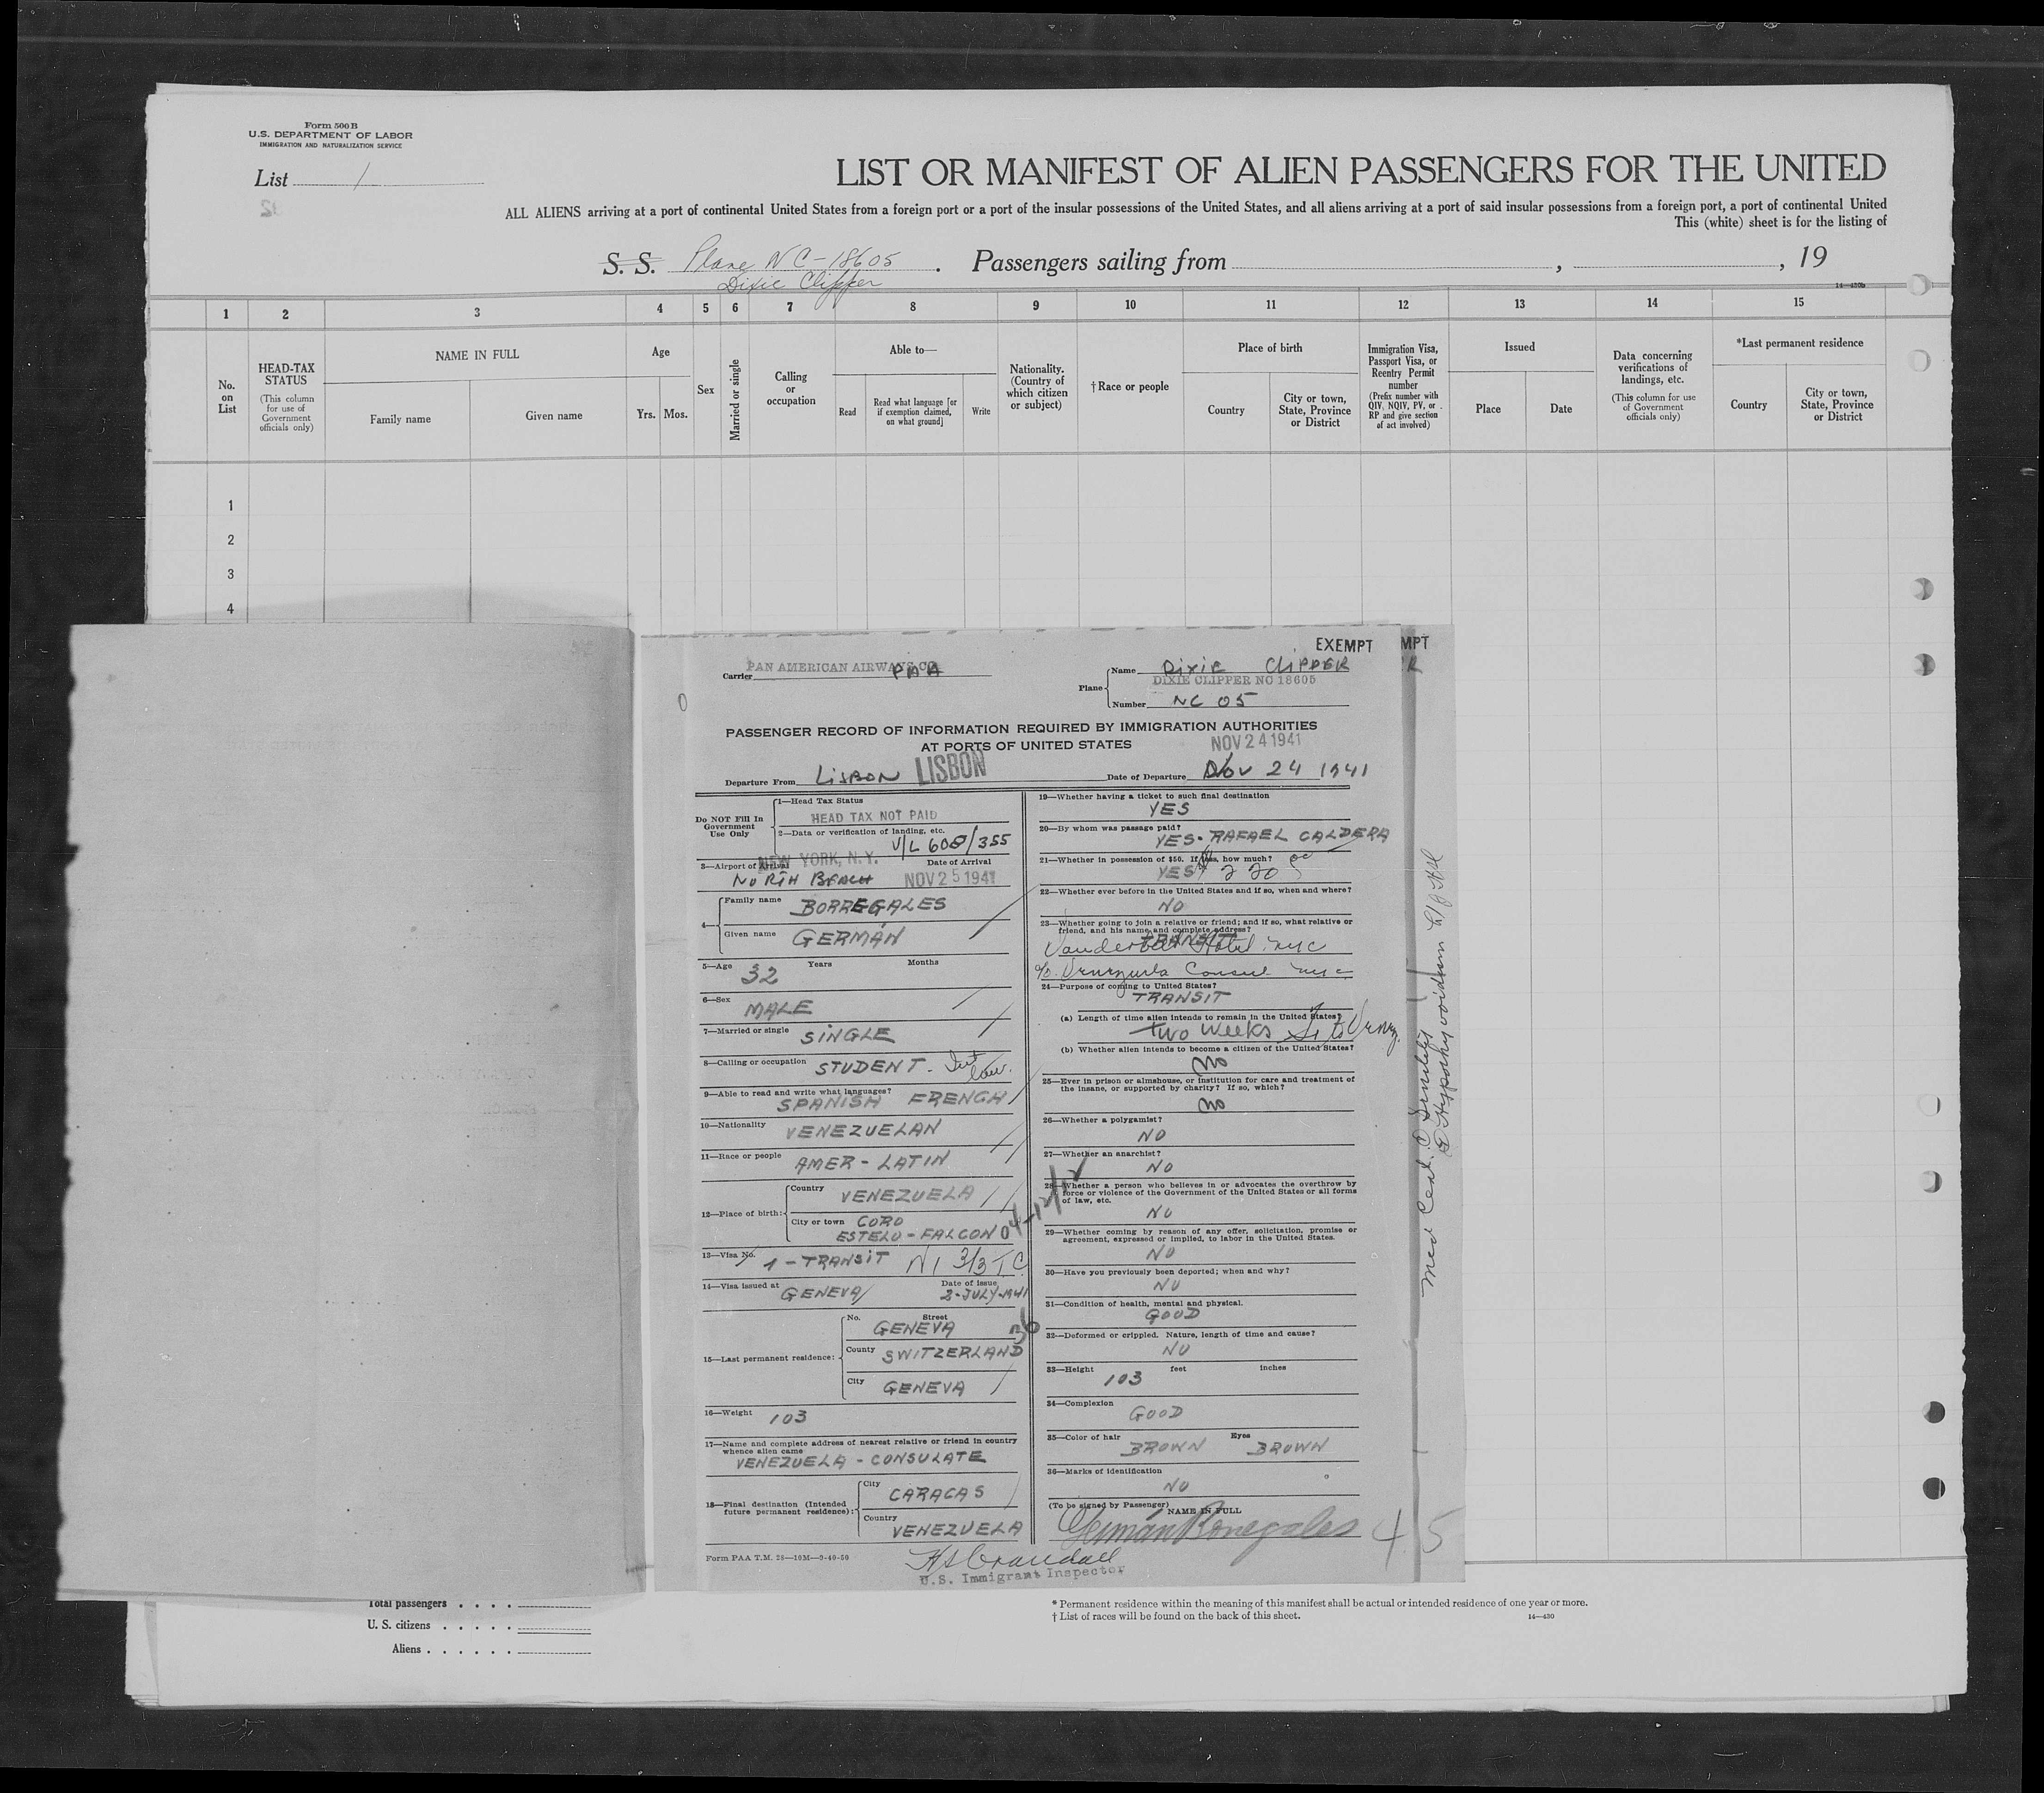 Form 500 B
U.S. DEPARTMENT OF LABOR
IMMIGRATION AND NATURALIZATION SERVICE
List 1
LIST OR MANIFEST OF ALIEN PASSENGERS FOR THE UNITED
ALL ALIENS arriving at a port of continental United States from a foreign port or a port of the insular possessions of the United States, and all aliens arriving at a port of said insular possessions from a foreign port, a port of continental United
This (white) sheet is for the listing of
S. S. Plane NC-18605 . Passengers sailing from , , 19
Dixie Clipper
14—430b
1 2 3 4 5 6 7 8 9 10 11 12 13 14 15
No. on List
HEAD-TAX STATUS
(This column for use of Government officials only)
NAME IN FULL
Family name
Given name
Age
Yrs. Mos.
Sex
Married or single
Calling or occupation
Able to—
Read
Read what language [or if exemption claimed, on what ground]
Write
Nationality. (Country of which citizen or subject)
†Race or people
Place of birth
Country
City or town, State, Province or District
Immigration Visa, Passport Visa, or Reentry Permit number
(Prefix number with QIV, NQIV, PV, or RP and give section of act involved)
Issued
Place
Date
Data concerning verifications of landings, etc.
(This column for use of Government officials only)
*Last permanent residence
Country
City or town, State, Province or District
1
2
3
4
EXEMPT MPT
PAN AMERICAN AIRWAYS CO
Carrier PAA
Plane
Name DIXIE CLIPPER R
DIXIE CLIPPER NC 18605
Number NC 05
PASSENGER RECORD OF INFORMATION REQUIRED BY IMMIGRATION AUTHORITIES
AT PORTS OF UNITED STATES
NOV 24 1941
Departure From LISBON LISBON
Date of Departure NOV 24 1941
Do NOT Fill In Government Use Only
1—Head Tax Status
HEAD TAX NOT PAID
2—Data or verification of landing, etc.
V/L 608/355
3—Airport of Arrival NEW YORK, N.Y. Date of Arrival
NORTH BEACH NOV 25 1941
4— Family name BORREGALES
Given name GERMÁN
5—Age 32 Years Months
6—Sex MALE
7—Married or single SINGLE
8—Calling or occupation STUDENT - Int law.
9—Able to read and write what languages?
SPANISH FRENCH
10—Nationality VENEZUELAN
11—Race or people AMER - LATIN
12—Place of birth: Country VENEZUELA
City or town CORO
ESTELO - FALCON
13—Visa No. 1 - TRANSIT
14—Visa issued at GENEVA Date of issue 2-JULY-1941
15—Last permanent residence:
No. Street
GENEVA
County SWITZERLAND
City GENEVA
16—Weight 103
17—Name and complete address of nearest relative or friend in country whence alien came
VENEZUELA - CONSULATE
18—Final destination (Intended future permanent residence):
City CARACAS
Country VENEZUELA
Form PAA T.M. 28—10M—9-40-50
19—Whether having a ticket to such final destination
YES
20—By whom was passage paid?
YES - RAFAEL CALDERA
21—Whether in possession of $50. If less, how much?
YES 220
22—Whether ever before in the United States and if so, when and where?
NO
23—Whether going to join a relative or friend; and if so, what relative or
friend, and his name and complete address?
TRANSIT
Vanderbilt Hotel nyc
c/o Venezuela Consul nyc
24—Purpose of coming to United States?
TRANSIT
(a) Length of time alien intends to remain in the United States?
TWO WEEKS
(b) Whether alien intends to become a citizen of the United States?
NO
25—Ever in prison or almshouse, or institution for care and treatment of
the insane, or supported by charity? If so, which?
NO
26—Whether a polygamist?
NO
27—Whether an anarchist?
NO
28—Whether a person who believes in or advocates the overthrow by
force or violence of the Government of the United States or all forms
of law, etc.
NO
29—Whether coming by reason of any offer, solicitation, promise or
agreement, expressed or implied, to labor in the United States.
NO
30—Have you previously been deported; when and why?
NO
31—Condition of health, mental and physical.
GOOD
32—Deformed or crippled. Nature, length of time and cause?
NO
33—Height 103 feet inches
34—Complexion
GOOD
35—Color of hair BROWN Eyes BROWN
36—Marks of identification
NO
(To be signed by Passenger) NAME IN FULL
Germán Borregales
45
H S Crandall
U.S. Immigrant Inspector
Med Cert.
Total passengers
U. S. citizens
Aliens
* Permanent residence within the meaning of this manifest shall be actual or intended residence of one year or more.
† List of races will be found on the back of this sheet.
14—430